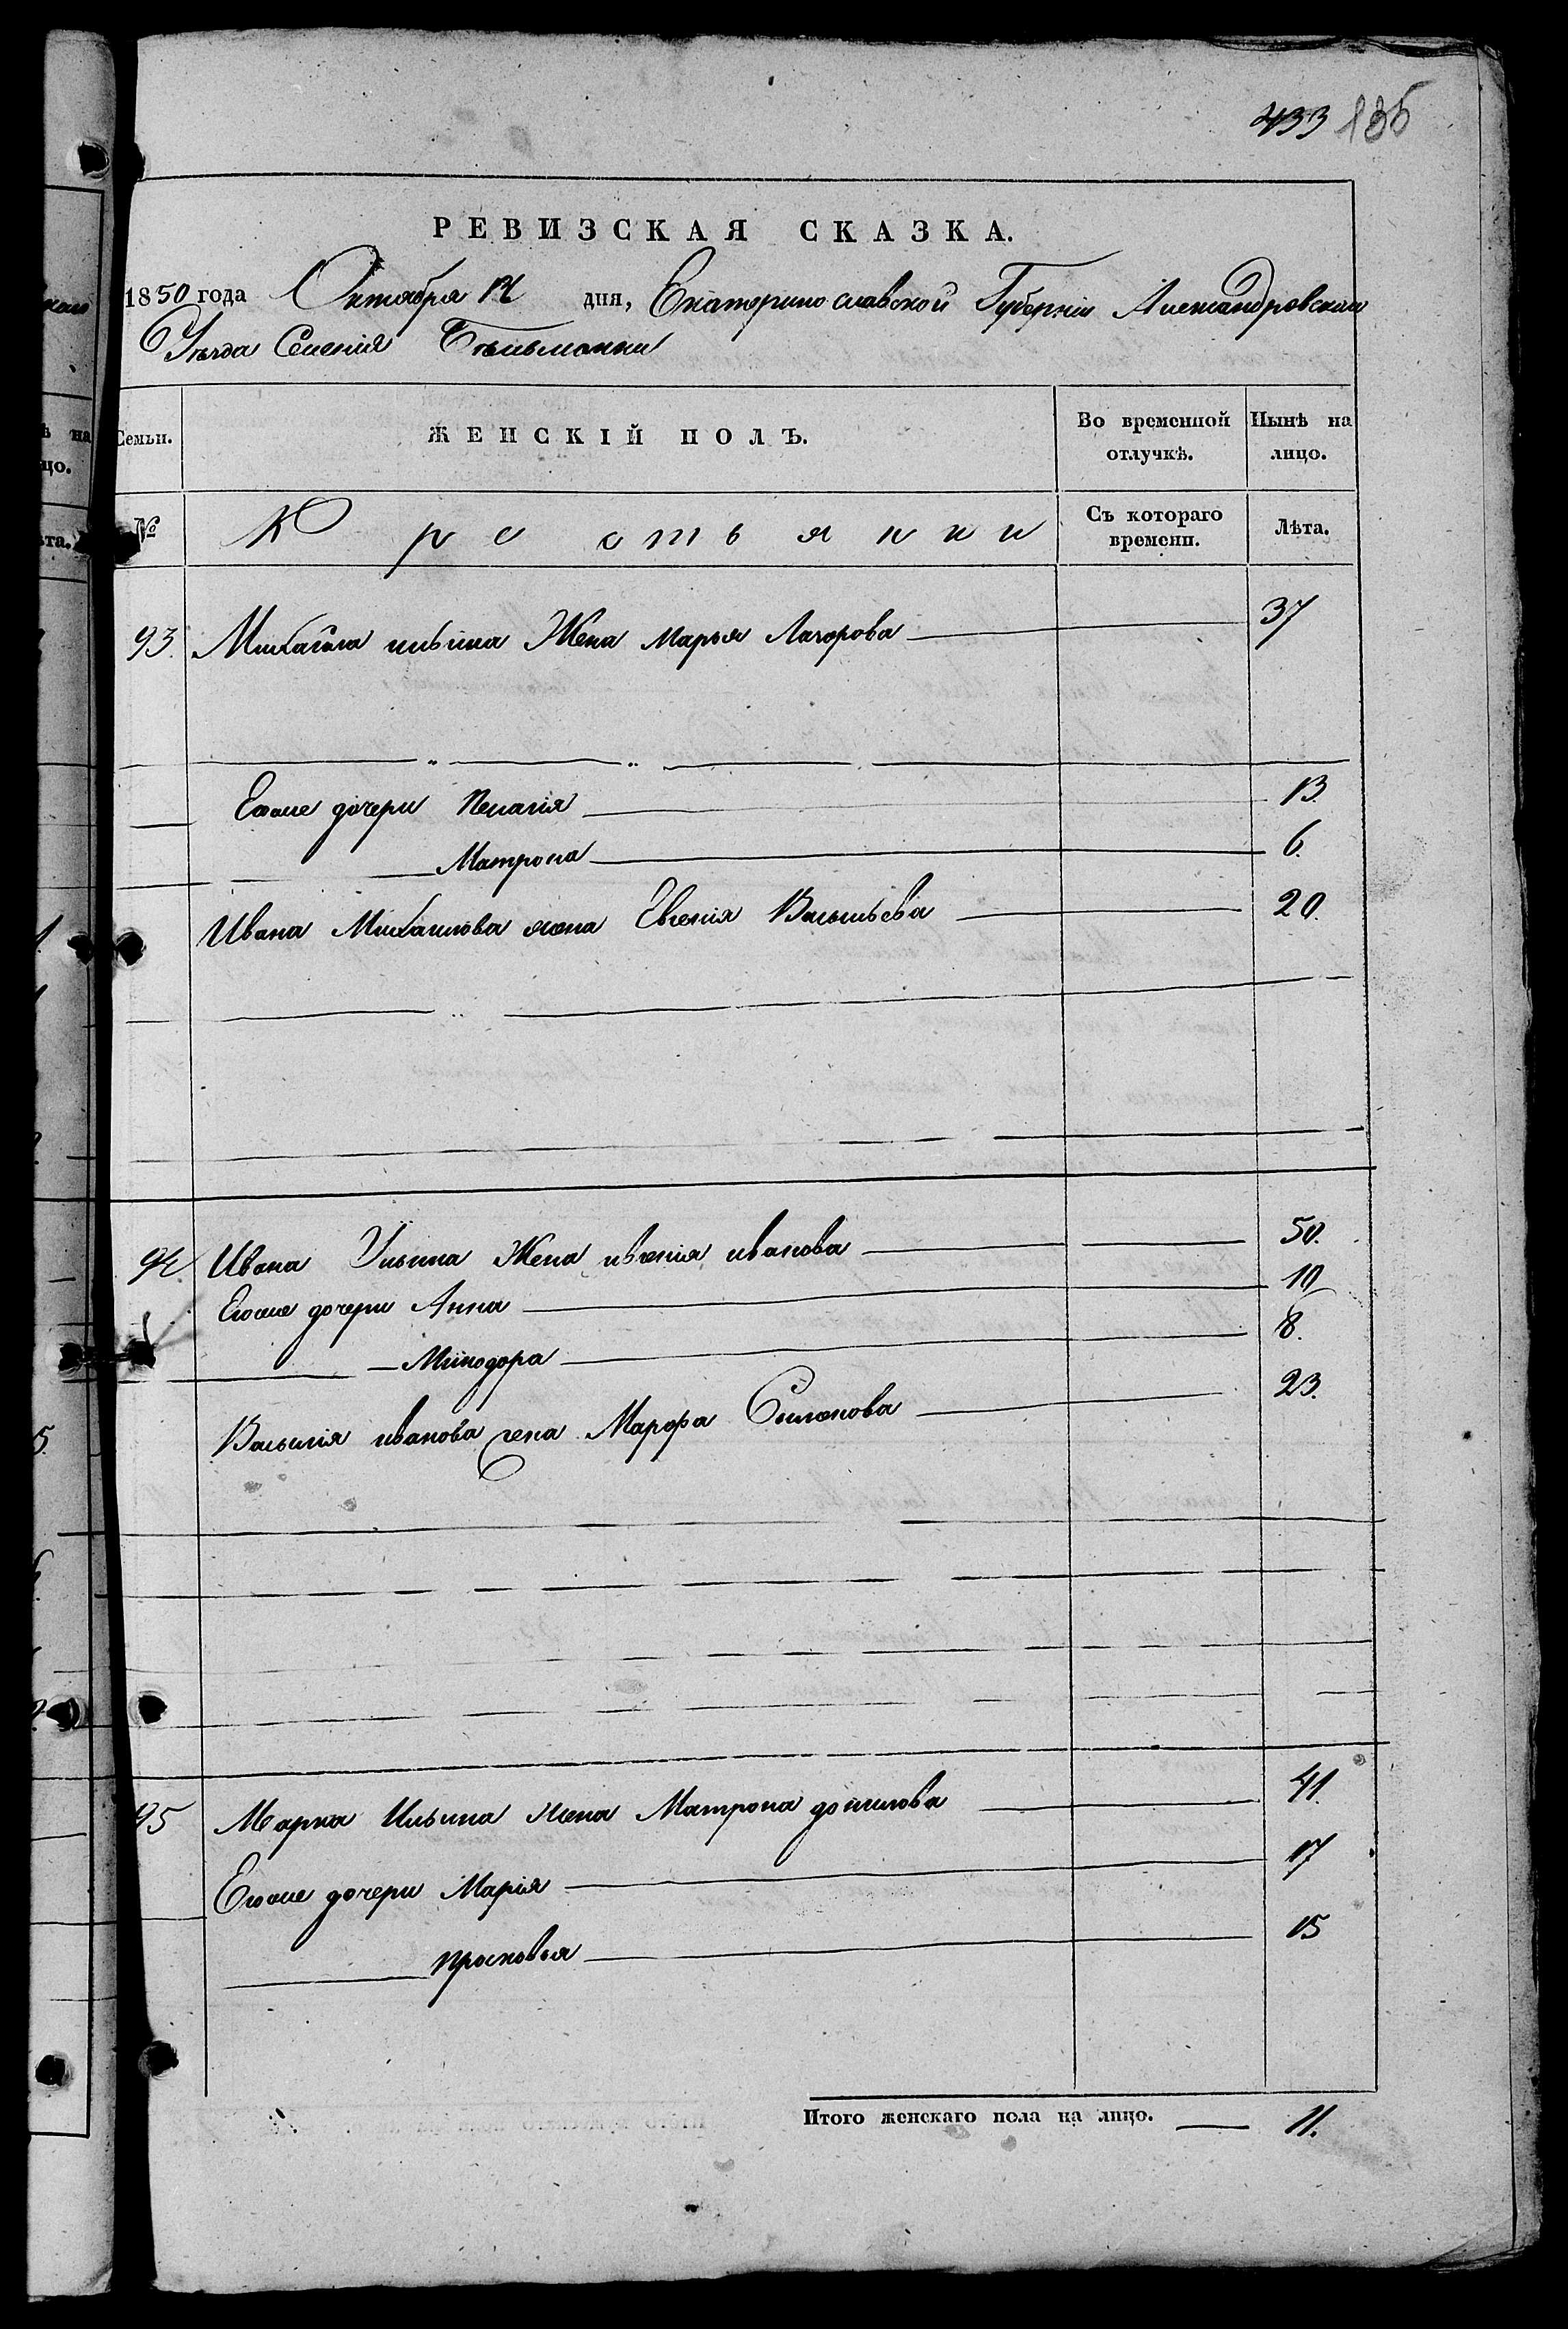 433 136
РЕВИЗСКАЯ СКАЗКА.
1850 года Октября 14 дня, Екатеринославской Губерніи Александровскаго
Уѣзда Селенія Бѣльманки
Семьи. ЖЕНСКІЙ ПОЛЪ. Во временной отлучкѣ. Нынѣ на лицо.
№ Крестьянки Съ котораго времени. Лѣта.
93. Михайла ильина Жена марья Лазорова 37
Егоже дочери Пелагія 13.
Матрона 6.
Ивана Михаилова жена Евгенія Васильева 20.
94. Ивана Ильина Жена ивгенія иванова 50.
Егоже дочери Анна 10
Минодора 8.
Василія иванова жена Марфа Симонова 23.
95 Марка Ильина жена Матрона данилова 41.
Егоже дочери Марія 17
просковья 15
Итого женскаго пола на лицо. 11.